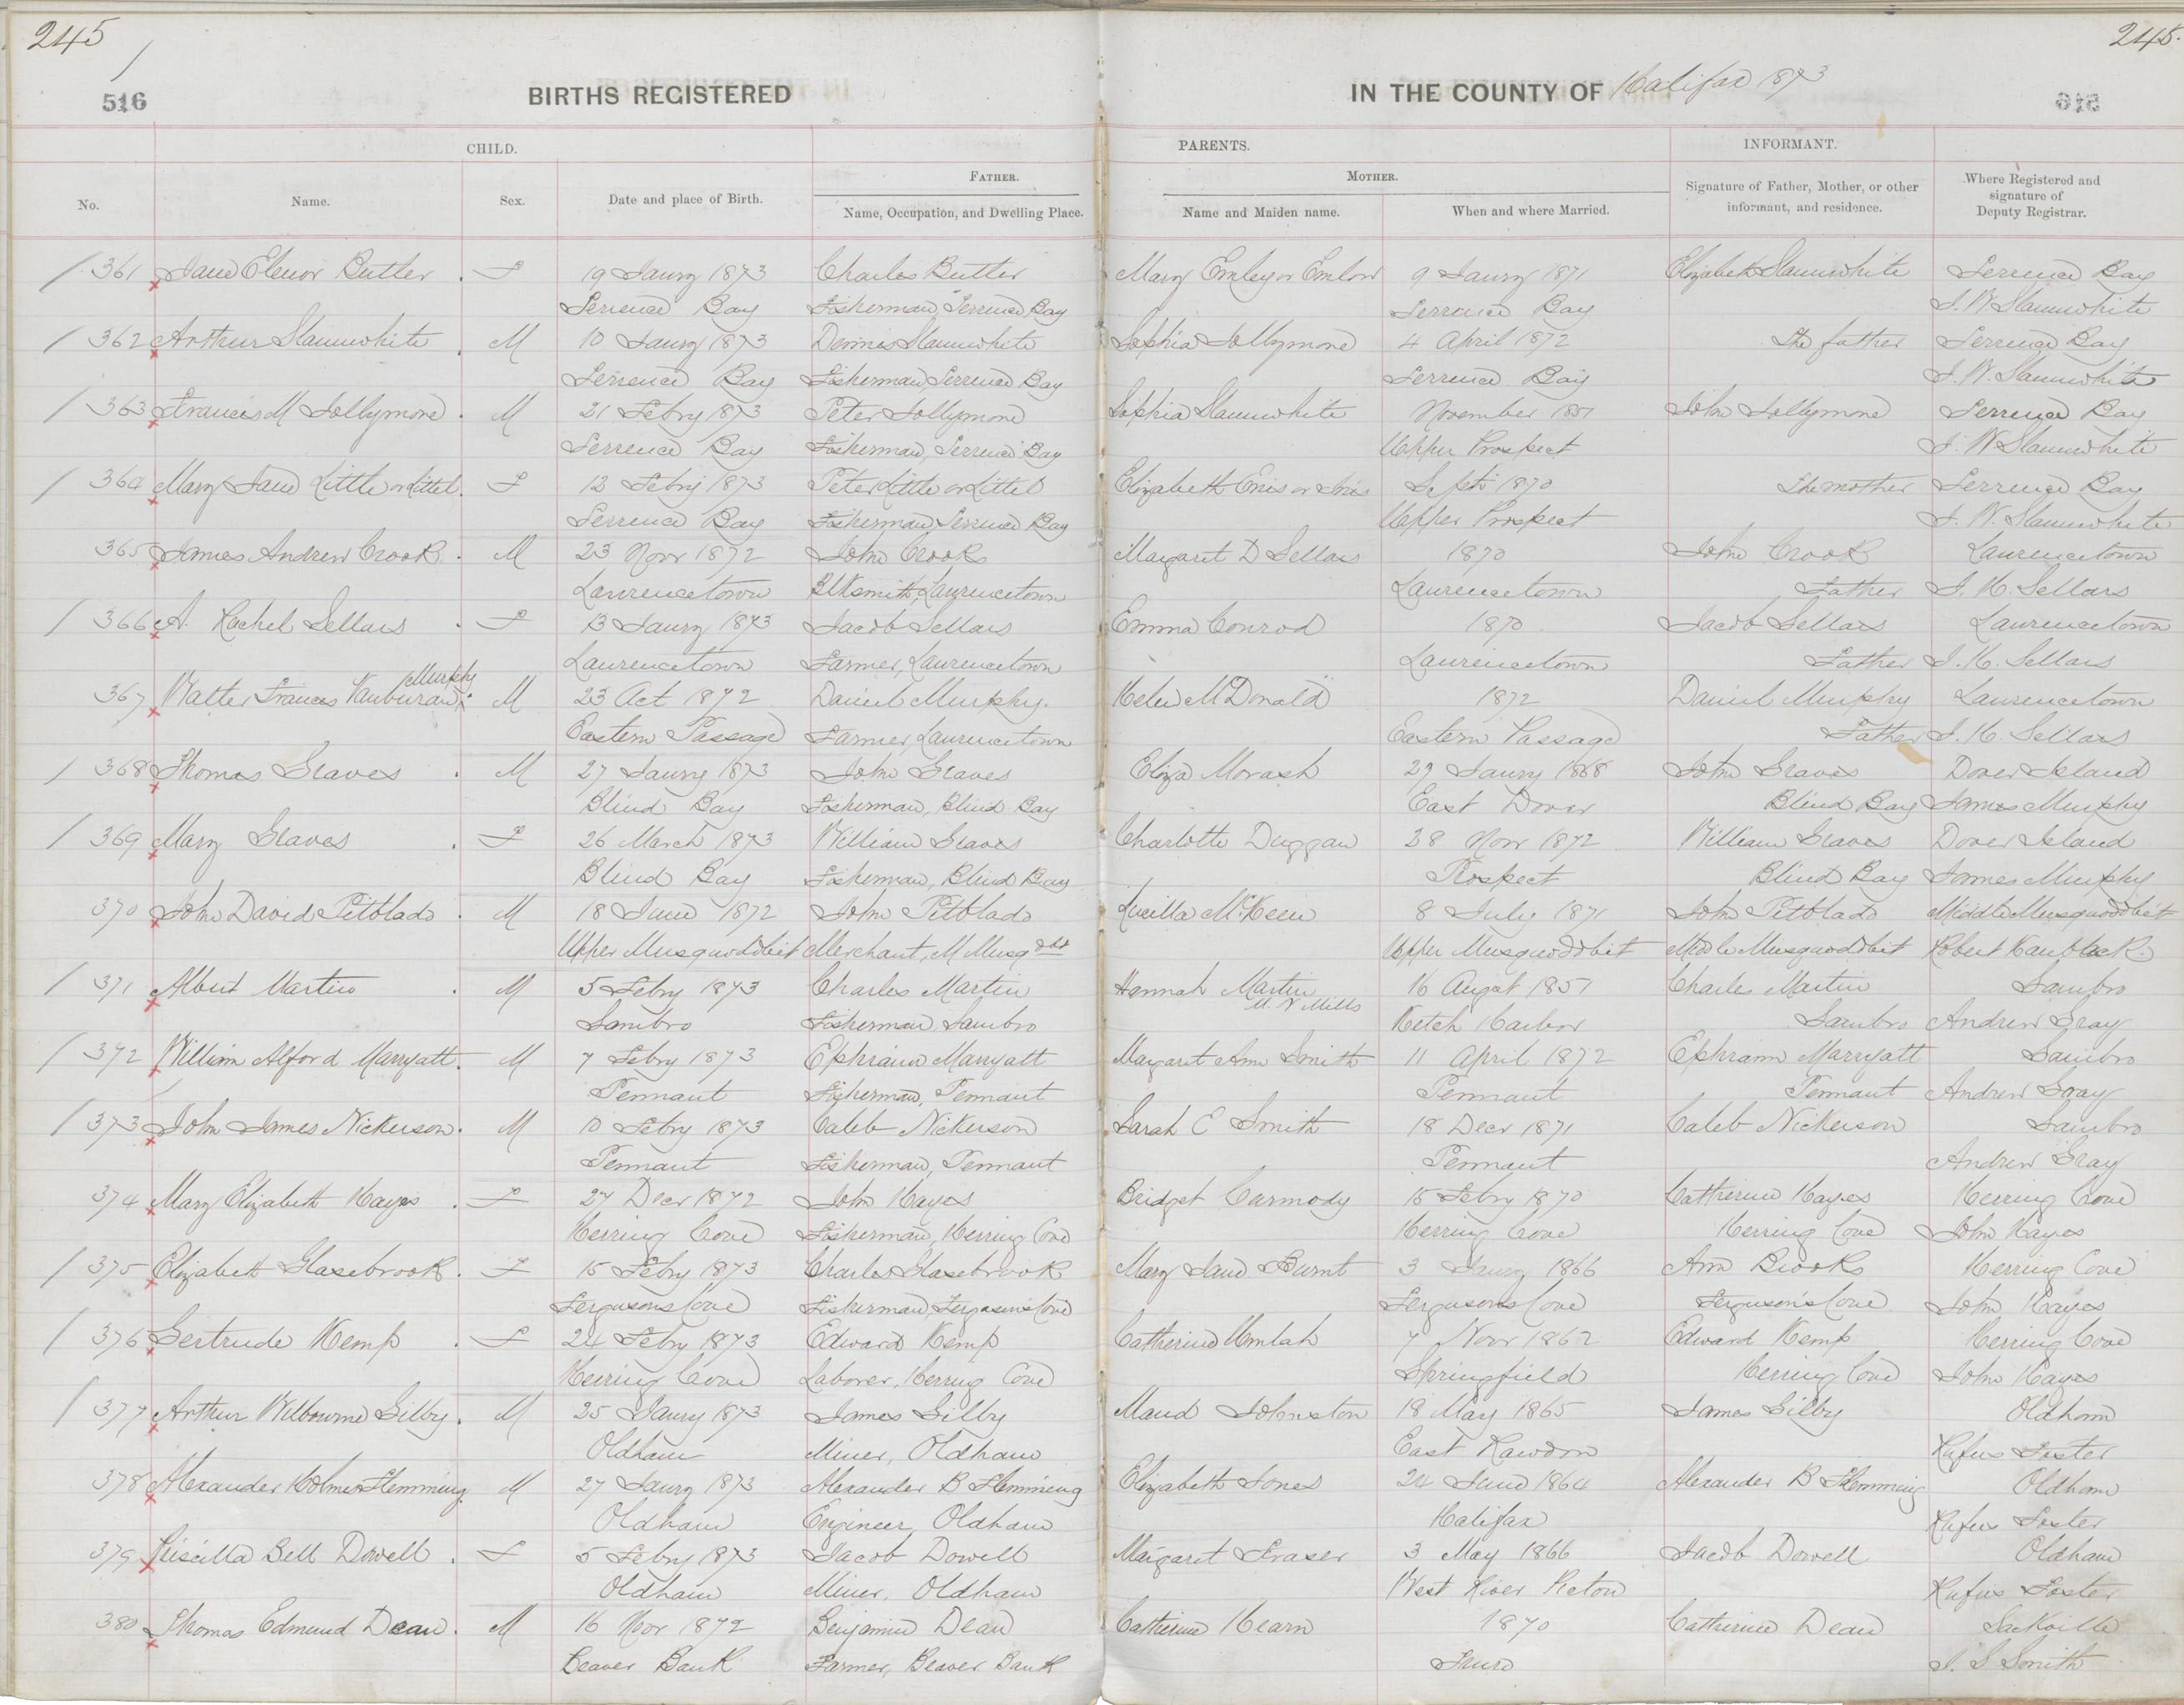 245
245.
516
BIRTHS REGISTERED
IN THE COUNTY OF Halifax 1873
516
CHILD.
PARENTS.
INFORMANT.
No.
Name.
Sex.
Date and place of Birth.
FATHER.
Name, Occupation, and Dwelling Place.
MOTHER.
Name and Maiden name.
When and where Married.
Signature of Father, Mother, or other
informant, and residence.
Where Registered and
signature of
Deputy Registrar.
/ 361 Jane Elenor Butler . F 19 Jaury 1873 Charles Butler Mary Emley or Emlow 9 Jaury 1871 Elizabeth Slaunwhite Terrence Bay
Terrence Bay Fisherman, Terrence Bay Terrence Bay J. W. Slaunwhite
/ 362 Arthur Slaunwhite . M 10 Jaury 1873 Dennis Slaunwhite Sophia Jollymore 4 April 1872 The father Terrence Bay
Terrence Bay Fisherman, Terrence Bay Terrence Bay J. W. Slaunwhite
/ 363 Francis M Jollymore . M 21 Febry 1873 Peter Jollymore Sophia Slaunwhite November 1851 John Jollymore Terrence Bay
Terrence Bay Fisherman, Terrence Bay Upper Prospect J. W. Slaunwhite
/ 364 Mary Jane Little or Littel . F 12 Febry 1873 Peter Little or Littel Elizabeth Enis or Inis Septr 1870 The mother Terrence Bay
Terrence Bay Fisherman, Terrence Bay Upper Prospect J. W. Slaunwhite
365 James Andrew Crook . M 23 Novr 1872 John Crooks Margaret D Sellars 1870 John Crook Laurencetown
Laurencetown Blksmith, Laurencetown Laurencetown Father J. H. Sellars
/ 366 A. Rachel Sellars . F 13 Jaury 1873 Jacob Sellars Emma Conrod 1870 Jacob Sellars Laurencetown
Laurencetown Farmer, Laurencetown Laurencetown Father J. H. Sellars
Murphy
367 Walter Frances Vanburan . M 23 Oct 1872 Daniel Murphy. Helen McDonald 1872 Daniel Murphy Laurencetown
Eastern Passage Farmer, Laurencetown Eastern Passage Father J. H. Sellars
/ 368 Thomas Graves . M 27 Jaury 1873 John Graves Eliza Morash 29 Jaury 1868 John Graves Dover Island
Blind Bay Fisherman, Blind Bay East Dover Blind Bay James Murphy
/ 369 Mary Graves . F 26 March 1873 William Graves Charlotte Duggan 28 Novr 1872 William Graves Dover Island
Blind Bay Fisherman, Blind Bay Prospect Blind Bay James Murphy
370 John David Pitblado . M 18 June 1872 John Pitblado Lucilla McKeen 8 July 1871 John Pitblado Middle Musquodobit
Upper Musquodobit Merchant, M Musqdbt Upper Musquodobit Middle Musquodobit Robert Kaulback.
/ 371 Albert Martin . M 5 Febry 1873 Charles Martin Hannah Martin 16 August 1851 Charles Martin Sambro
M. N Mills
Sambro Fisherman Sambro Ketch Harbor Sambro Andrew Gray
/ 372 William Alford Marryatt . M 7 Febry 1873 Ephraim Marryatt Margaret Ann Smith 11 April 1872 Ephraim Marryatt Sambro
Pennant Fisherman, Pennant Pennant Pennant Andrew Gray
/ 373 John James Nickerson . M 10 Febry 1873 Caleb Nickerson Sarah E Smith 18 Decr 1871 Caleb Nickerson Sambro
Pennant Fisherman, Pennant Pennant Andrew Gray
374 Mary Elizabeth Hayes . F 27 Decr 1872 John Hayes Bridget Carmody 15 Febry 1870 Catherine Hayes Herring Cove
Herring Cove Fisherman, Herring Cove Herring Cove Herring Cove John Hayes
/ 375 Elizabeth Glasebrook . F 15 Febry 1873 Charles Glasebrook Mary Jane Burnt 3 Jaury 1866 Ann Brooks Herring Cove
Fergusons Cove Fisherman, Ferguson's Cove Fergusons Cove Ferguson's Cove John Hayes
/ 376 Gertrude Kemp . F 24 Febry 1873 Edward Kemp Catherine Umlah 7 Novr 1862 Edward Kemp Herring Cove
Herring Cove Laborer, Herring Cove Springfield Herring Cove John Hayes
/ 377 Arthur Welbourne Gilby . M 25 Jaury 1873 James Gilby Maud Johnston 18 May 1865 James Gilby Oldham
Oldham Miner, Oldham East Rawdon Rufus Foster
378 Alexander Holmes Flemming M 27 Jaury 1873 Alexander B Flemming Elizabeth Jones 24 June 1864 Alexander B Flemming Oldham
Oldham Engineer, Oldham Halifax Rufus Foster
379 Priscilla Bell Dowell . F 5 Febry 1873 Jacob Dowell Margaret Fraser 3 May 1866 Jacob Dowell Oldham
Oldham Miner, Oldham West River Pictou Rufus Foster
380 Thomas Edmund Dean . M 16 Novr 1872 Benjamin Dean Catherine Hearn 1870 Catherine Dean Sackville
Beaver Bank Farmer, Beaver Bank Truro J. S Smith